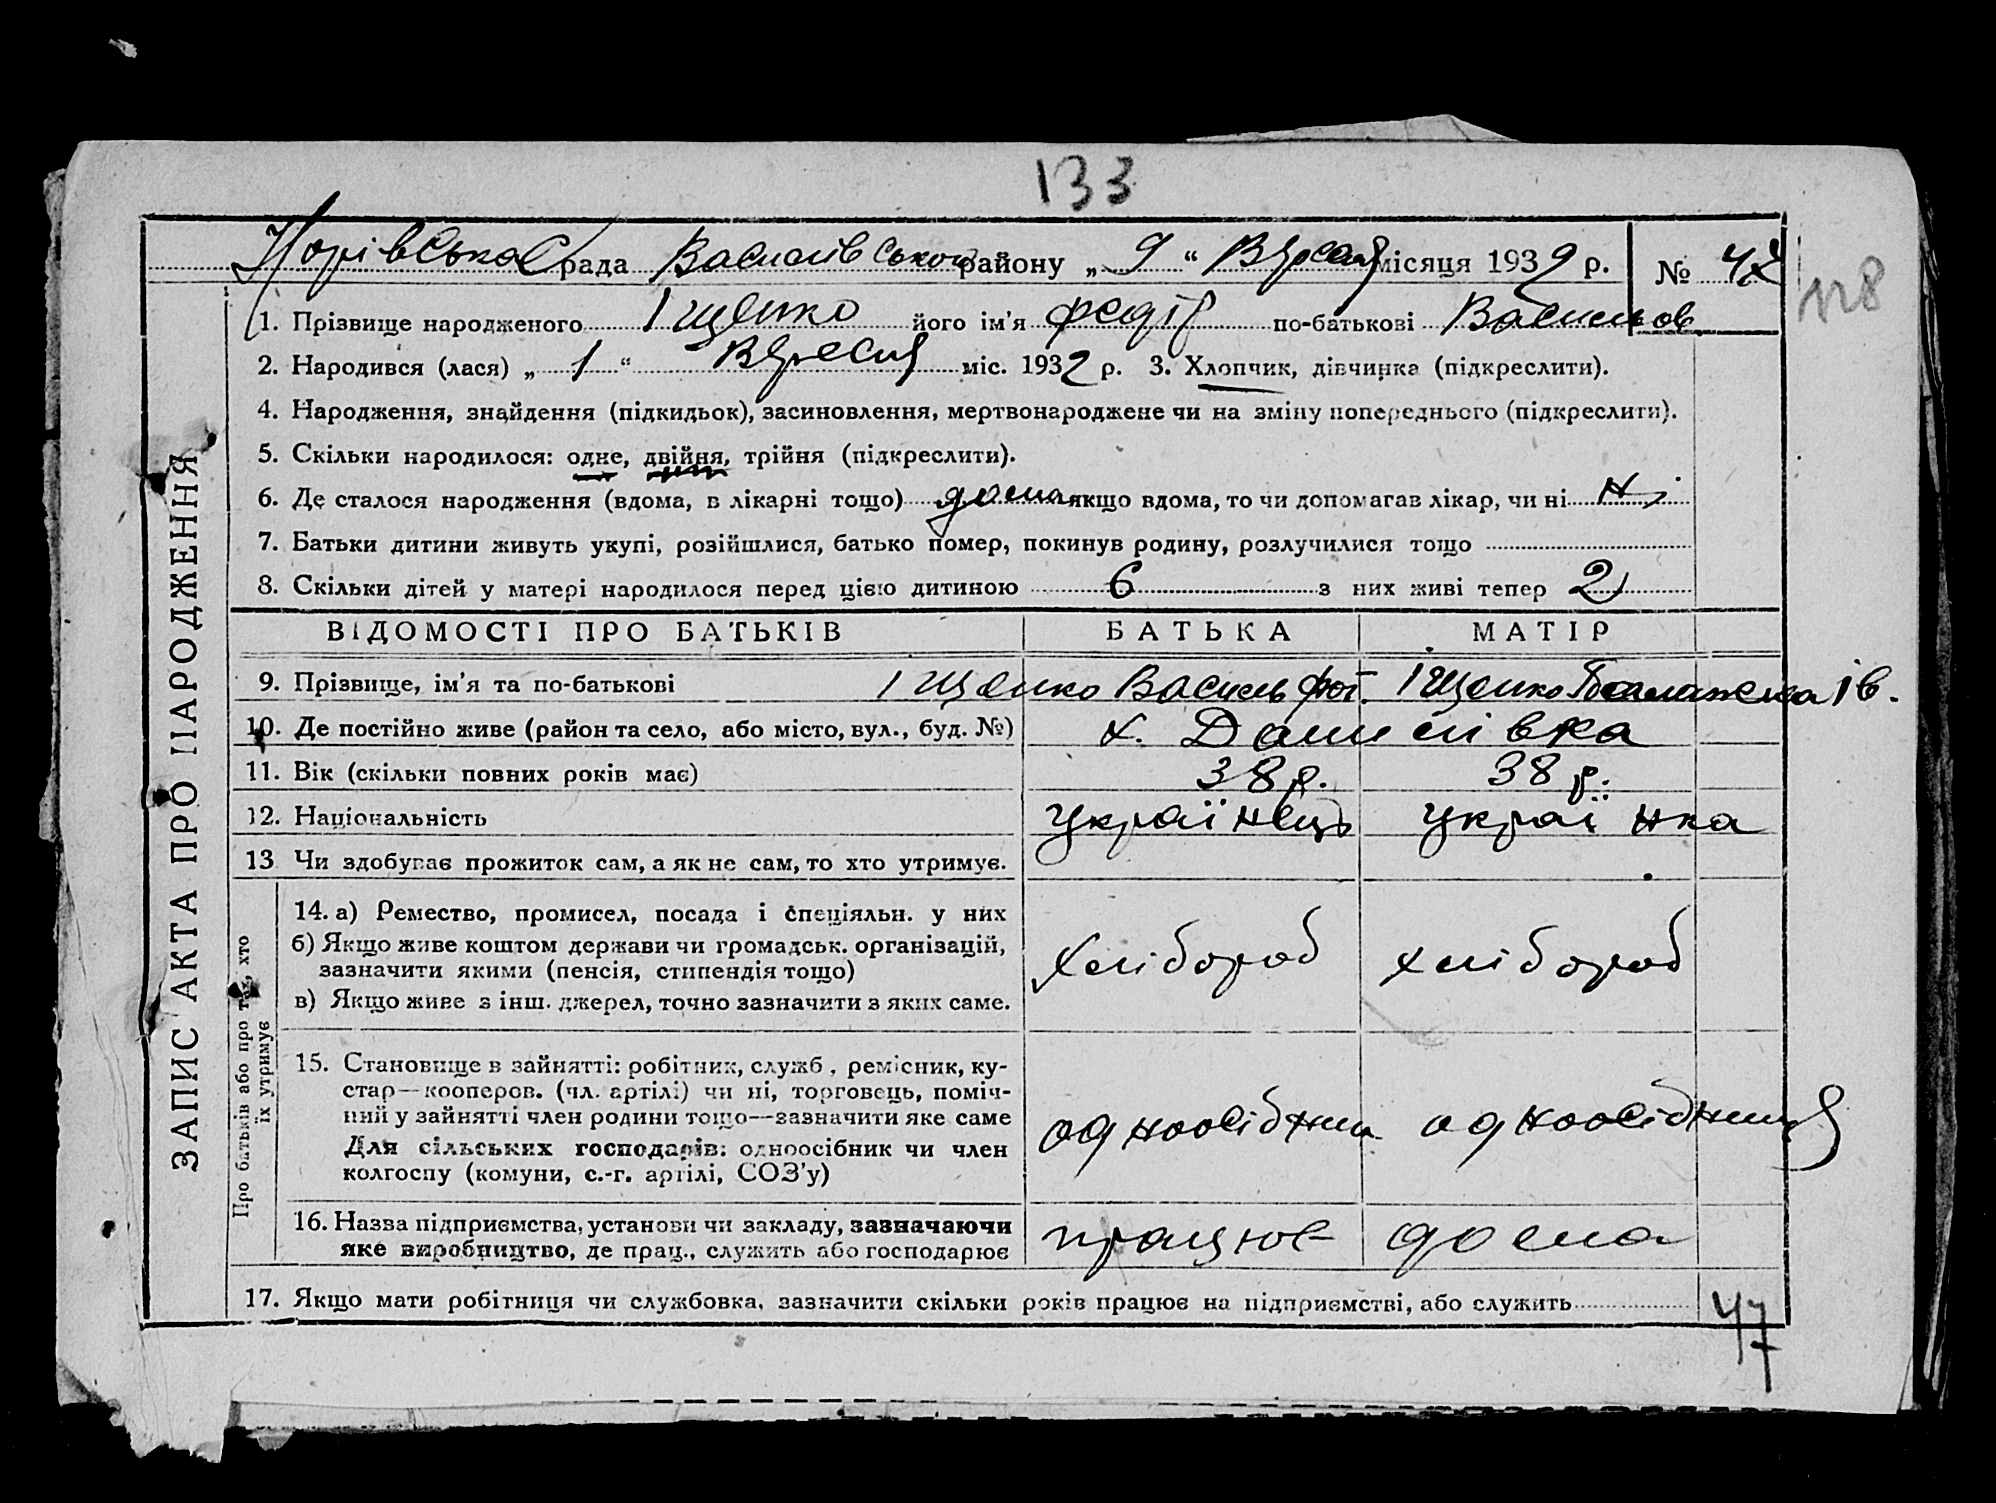 133
рада Василівського району „ 9 “ Вересня місяця 1932 р. № 47
128
1. Прізвище народженого Іщенко його ім'я Федір по-батькові Васильов
2. Народився (лася) „ 1 “ Вересня міс. 1932 р. 3. Хлопчик, дівчинка (підкреслити).
4. Народження, знайдення (підкидьок), засиновлення, мертвонароджене чи на зміну попереднього (підкреслити).
5. Скільки народилося: одне, двійня, трійня (підкреслити).
6. Де сталося народження (вдома, в лікарні тощо) дома якщо вдома, то чи допомагав лікар, чи ні ні
7. Батьки дитини живуть укупі, розійшлися, батько помер, покинув родину, розлучилися тощо
8. Скільки дітей у матері народилося перед цією дитиною 6 з них живі тепер 2
ЗАПИС АКТА ПРО НАРОДЖЕННЯ
ВІДОМОСТІ ПРО БАТЬКІВ БАТЬКА МАТІР
9. Прізвище, ім'я та по-батькові Іщенко Василь Іщенко Ів.
10. Де постійно живе (район та село, або місто, вул., буд. №) х. Данилівка
11. Вік (скільки повних років має) 38 р. 38 р.
12. Національність українець українка
13 Чи здобуває прожиток сам, а як не сам, то хто утримує.
Про батьків або про тих, хто їх утримує
14. а) Ремество, промисел, посада і спеціяльн. у них
б) Якщо живе коштом держави чи громадськ. організацій,
зазначити якими (пенсія, стипендія тощо)
хлібороб хлібороб
в) Якщо живе з інш. джерел, точно зазначити з яких саме.
15. Становище в зайнятті: робітник, служб., ремісник, ку-
стар—кооперов. (чл. артілі) чи ні, торговець, поміч-
ний у зайнятті член родини тощо—зазначити яке саме
одноосібник одноосібниця
Для сільських господарів: одноосібник чи член
колгоспу (комуни, с.-г. артілі, СОЗ'у)
16. Назва підприємства, установи чи закладу, зазначаючи
яке виробництво, де прац., служить або господарює
працює дома
17. Якщо мати робітниця чи службовка, зазначити скільки років працює на підприємстві, або служить
47